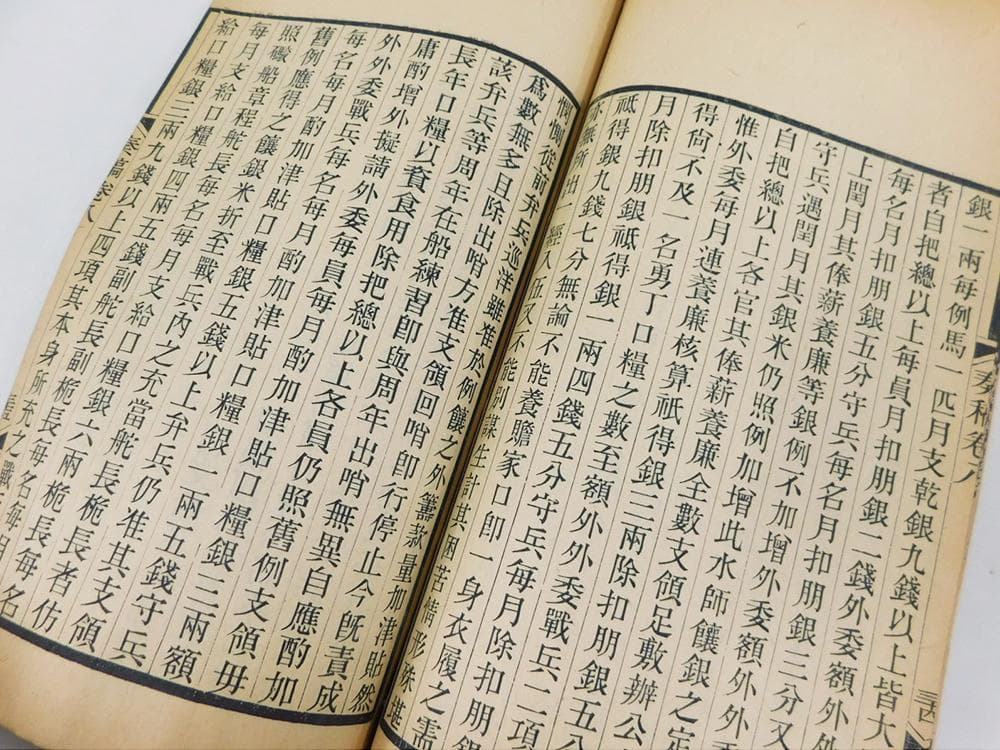 銀一兩每例馬一匹月支乾銀九錢以上皆大
者自把總以上每員月扣朋銀二錢外委額外
每名月扣朋銀五分守兵每名月扣朋銀三分又
上閏月其俸薪養廉等銀例不加增外委額外外
守兵遇閏月其銀米仍照例加增此水師饟銀之定
自把總以上各官其俸薪養廉全數支領足敷辦公
惟外委每月連養廉核算祇得銀三兩除扣朋銀五
得尙不及一名勇丁口糧之數至額外外委戰兵二項
月除扣朋銀祗得銀一兩四錢五分守兵每月除扣朋
祗得銀九錢七分無論不能養贍家口卽一身衣履之需
無所出一經入伍又不能別謀生計其困苦情形殊堪
憫惻從前弁兵巡洋雖准於例饟之外籌款量加津貼然
爲數無多且除出哨方准支領回哨卽行停止今旣責成
該弁兵等周年在船練習卽與周年出哨無異自應酌加
長年口糧以資食用除把總以上各員仍照舊例支領毋
庸酌增外擬請外委每員每月酌加津貼口糧銀三兩額
外外委戰兵每名每月酌加津貼口糧銀一兩五錢守兵
每名每月酌加津貼口糧銀五錢以上弁兵仍准其支領
舊例應得之饟銀米折至戰兵內之充當舵長桅長者仿
照礮船章程舵長每名每月支給口糧銀六兩桅長每名
每月支給口糧銀四兩五錢副舵長副桅長每名每月
給口糧銀三兩九錢以上四項其本身所充之戰
奏稿卷八
奏稿卷八